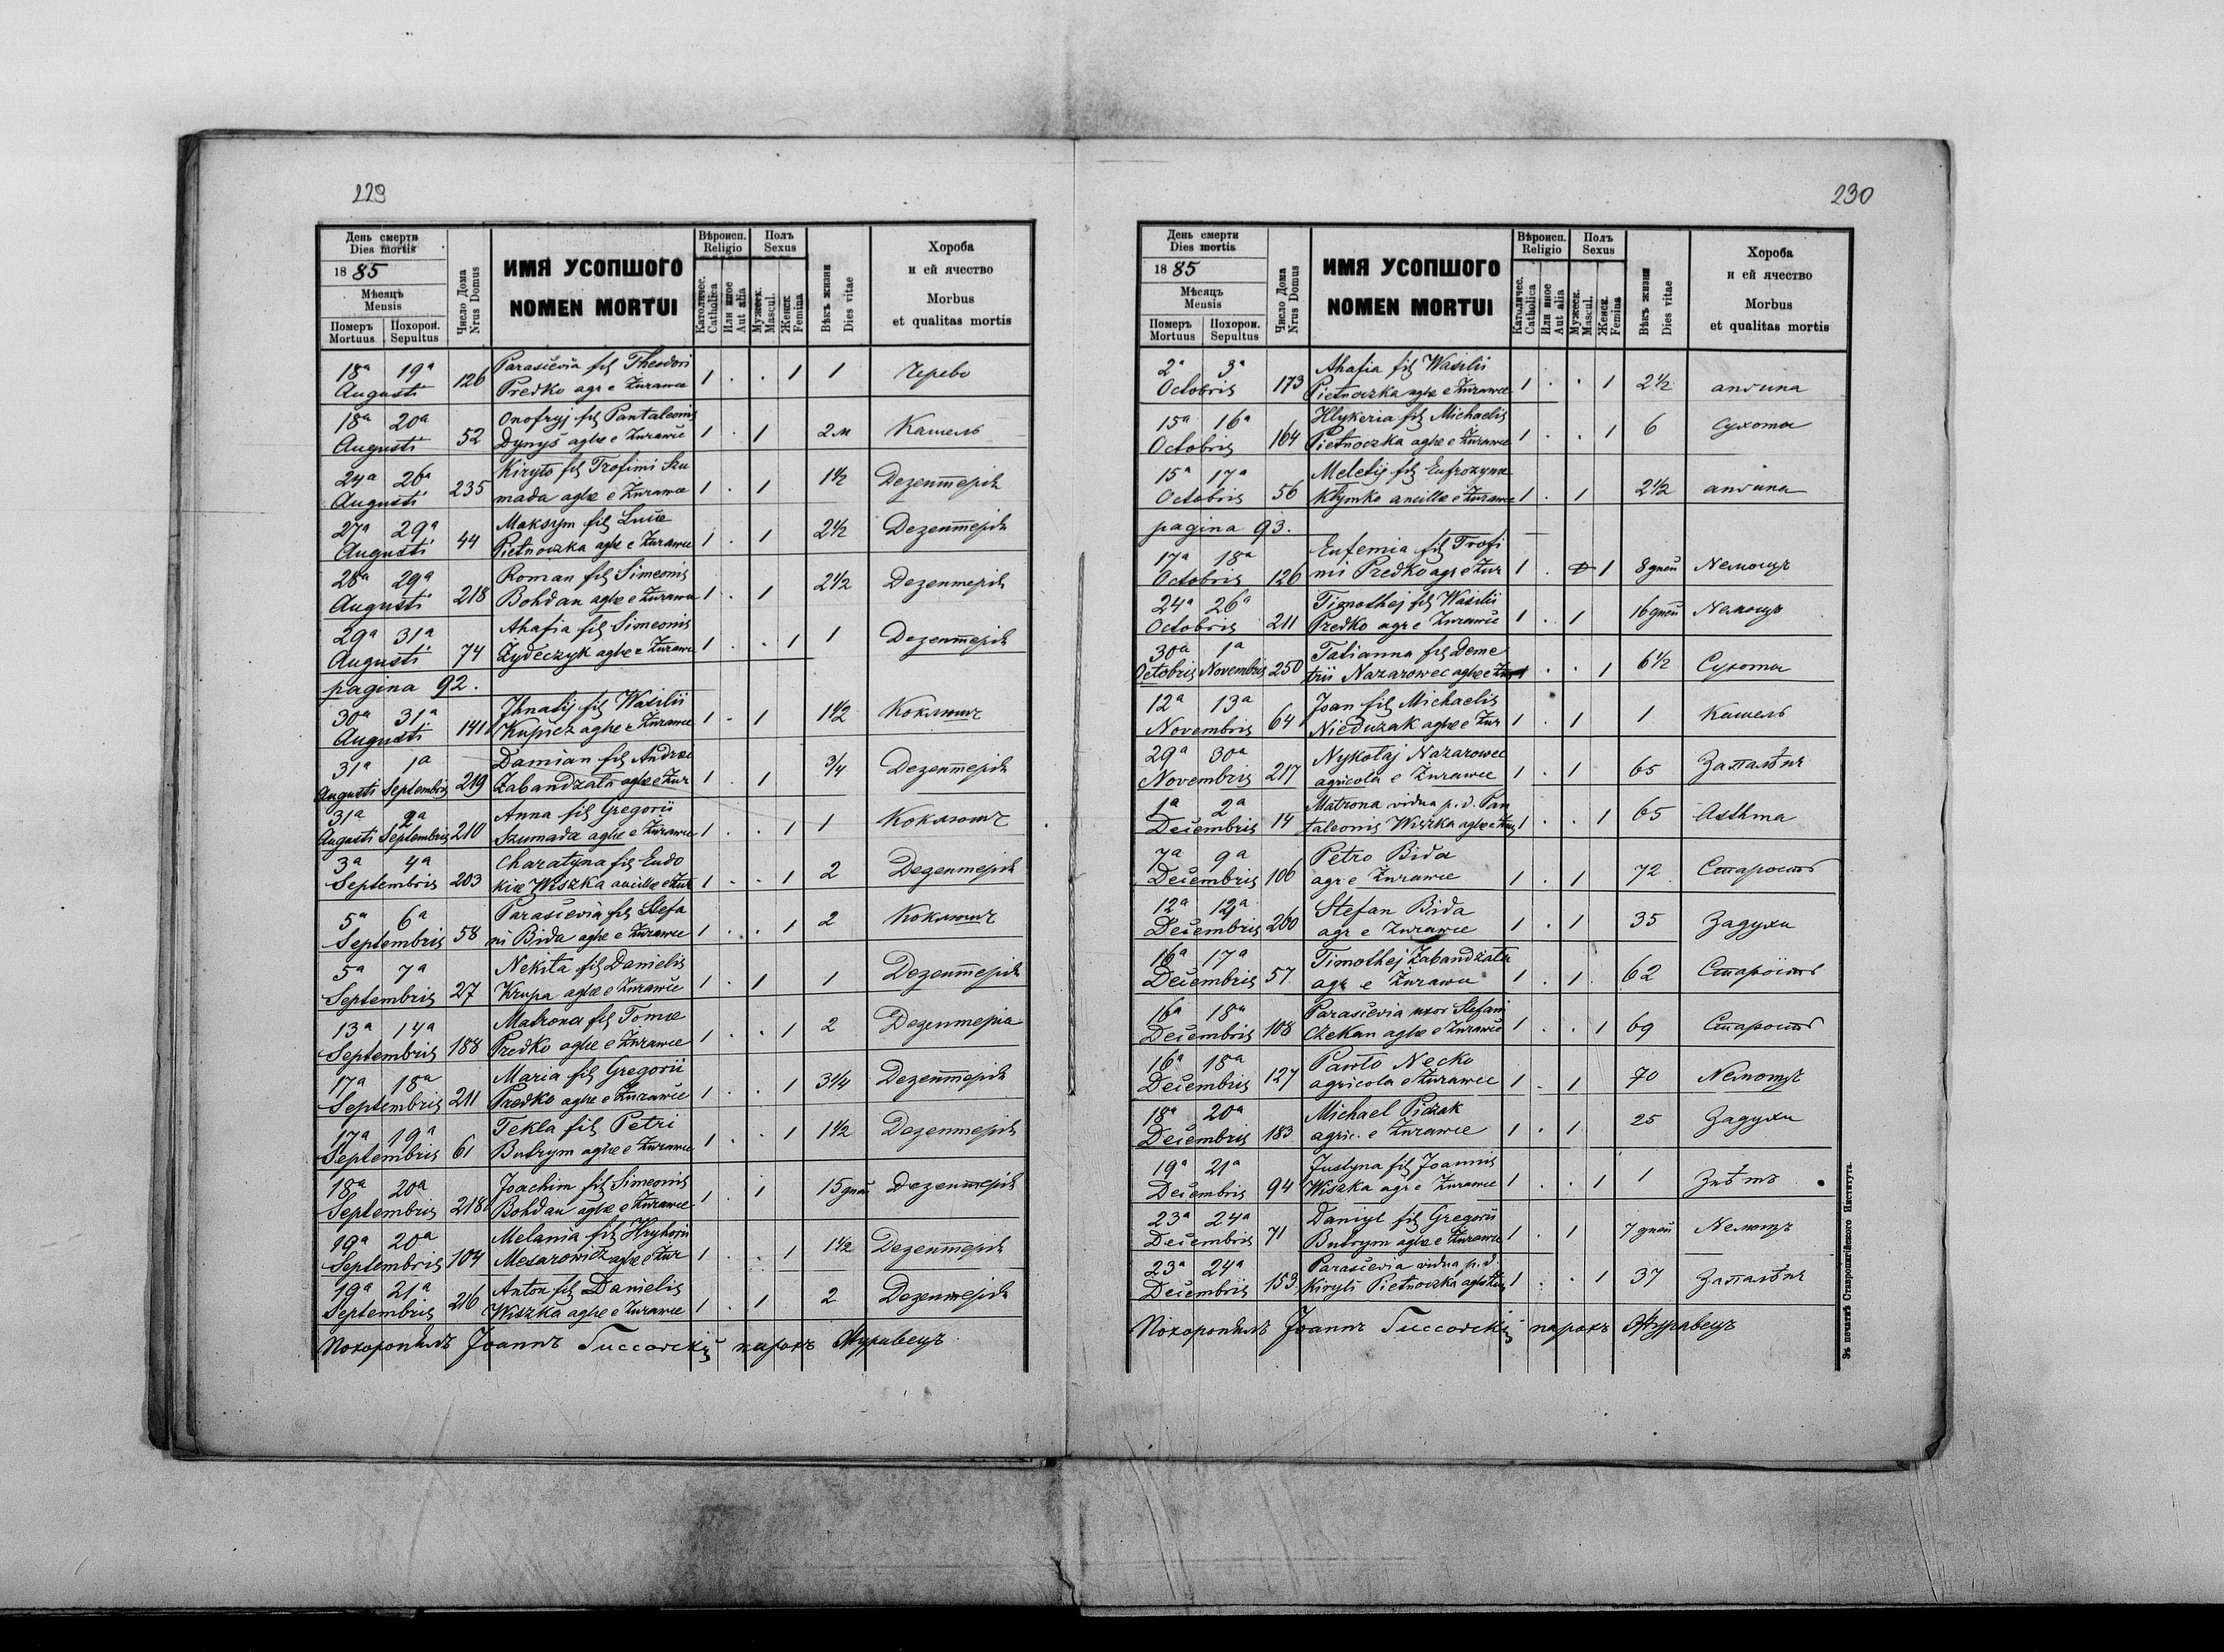 229
День смерти
Dies mortis
18 85
Мѣсяцъ
Mensis
Померъ Похорон.
Mortuus Sepultus
Число Дома
Nrus Domus
ИМЯ УСОПШОГО
NOMEN MORTUI
Вѣроисп.
Religio
Католичес.
Catholica
Или иное
Aut alia
Полъ
Sexus
Мужеск.
Mascul.
Женск.
Femina
Вѣкъ жизни
Dies vitae
Хороба
и ей ячество
Morbus
et qualitas mortis
18ª 19ª Parascevia fil Theodori
Augusti 126 Predko agr e Żurawce 1 . . 1 1 Черево
18ª 20ª Onofryj fil Pantaleonis
Augusti 52 Dynyś aglae e Żurawce 1 . 1 2м Кашель
24ª 26ª Kiryło fil Trofimi Szu
Augusti 235 mada aglae e Żurawce 1 . 1 1½ Дезентерія
27ª 29ª Maksym fil Lucae
Augusti 44 Pietnoczka aglae e Żurawce 1 . 1 2½ Дезентерія
28ª 29ª Roman fil Simeonis
Augusti 218 Bohdan aglae e Żurawce 1 . 1 2½ Дезентерія
29ª 31ª Ahafia fil Simeonis
Augusti 74 Zydeczyk aglae e Żurawce 1 . . 1 1 Дезентерія
pagina 92.
30ª 31ª Jhnatij fil Wasilii
Augusti 141 Kupicz aglae e Żurawce 1 . 1 1½ Коклюшъ
31ª 1ª Damian fil Andreae
Augusti Septembris 219 Żabandżała aglae e Żur 1 . 1 ¾ Дезентерія
31ª 2ª Anna fil Gregorii
Augusti Septembris 210 Szumada aglae e Żurawce 1 . . 1 1 Коклюшъ
3ª 4ª Charatyna fil Eudo
Septembris 203 kiae Wiszka ancillae e Żur 1 . . 1 2 Дезентерія
5ª 6ª Parascevia fil Stefa
Septembris 58 ni Bida aglae e Żurawce 1 . . 1 2 Коклюшъ
5ª 7ª Nekita fil Danielis
Septembris 27 Krupa aglae e Żurawce 1 . 1 1 Дезентерія
13ª 14ª Matrona fil Tomae
Septembris 188 Predko aglae e Żurawce 1 . . 1 2 Дезентеріа
17ª 18ª Maria fil Gregorii
Septembris 211 Predko aglae e Żurawce 1 . . 1 3¼ Дезентерія
17ª 19ª Tekla fil Petri
Septembris 61 Butrym aglae e Żurawce 1 . . 1 1½ Дезентерія
18ª 20ª Joachim fil Simeonis
Septembris 218 Bohdan aglae e Żurawce 1 . 1 15 дней Дезентерія
19ª 20ª Melania fil Hryhorii
Septembris 104 Mesarowicz aglae e Żur 1 . . 1 1½ Дезентерія
19ª 21ª Anton fil Danielis
Septembris 216 Wiszka aglae e Żurawce 1 . 1 2 Дезентерія
Похоронилъ Іоаннъ парохъ Журавецъ
230
День смерти
Dies mortis
18 85
Мѣсяцъ
Mensis
Померъ Похорон.
Mortuus Sepultus
Число Дома
Nrus Domus
ИМЯ УСОПШОГО
NOMEN MORTUI
Вѣроисп.
Religio
Католичес.
Catholica
Или иное
Aut alia
Полъ
Sexus
Мужеск.
Mascul.
Женск.
Femina
Вѣкъ жизни
Dies vitae
Хороба
и ей ячество
Morbus
et qualitas mortis
2ª 3ª Ahafia fil Wasilii
Octobris 173 Pietnoczka aglae e Żurawce 1 . . 1 2½
15ª 16ª Hlykeria fil Michaelis
Octobris 164 Pietnoczka aglae e Żurawce 1 . . 1 6 Сухоты
15ª 17ª Meletij fil Eufrozynae
Octobris 56 Kłymko ancillae e Żurawce 1 . 1 2½
pagina 93.
17ª 18ª Eufemia fil Trofi
Octobris 126 mi Predko agr e Żur 1 . 1 8 дней Немощъ
24ª 26ª Timothej fil Wasilii
Octobris 211 Predko agr e Żurawce 1 . 1 16 дней Немощъ
30ª 1ª Tatianna fil Deme
Octobris Novembris 250 trii Nazarowec aglae e . . 1 6½ Сухоты
12ª 13ª Joan fil Michaelis
Novembris 64 Nieduzak aglae e Żur 1 . 1 1 Кашель
29ª 30ª Nykołaj Nazarowec
Novembris 217 agricola e Żurawce 1 . 1 65
1ª 2ª Matrona vidua p.d. Pan
Decembris 14 taleonis Wiszka aglae e Żur 1 . . 1 65 Asthma
7ª 9ª Petro Bida
Decembris 106 agr e Żurawce 1 . 1 72 Старость
12ª Stefan Bida
Decembris 260 agr e Żurawce 1 . 1 35 Задухи
16ª 17ª Timothej Żabandżała
Decembris 57 agr e Żurawce 1 . 1 62 Старость
16ª 18ª Parascevia uxor Stefani
Decembris 108 Czekan aglae e Żurawce 1 . . 1 69 Старость
16ª 18ª Pawło Necko
Decembris 127 agricola e Żurawce 1 . 1 70 Немощъ
18ª 20ª Michael Piczak
Decembris 183 agric. e Żurawce 1 . 1 25 Задухи
19ª 21ª Justyna fil Joannis
Decembris 94 Wiszka agr e Żurawce 1 . . 1 1
23ª 24ª Daniyl fil Gregorii
Decembris 71 Butrym aglae e Żurawce 1 . 1 7 дней Немощъ
23ª 24ª Parascevia vidua p.d.
Decembris 153 Kiryli Pietnoczka aglae e Żur 1 . . 1 37
Похоронилъ Іоаннъ парохъ Журавецъ
Зъ печатнѣ Ставропигійского Института.